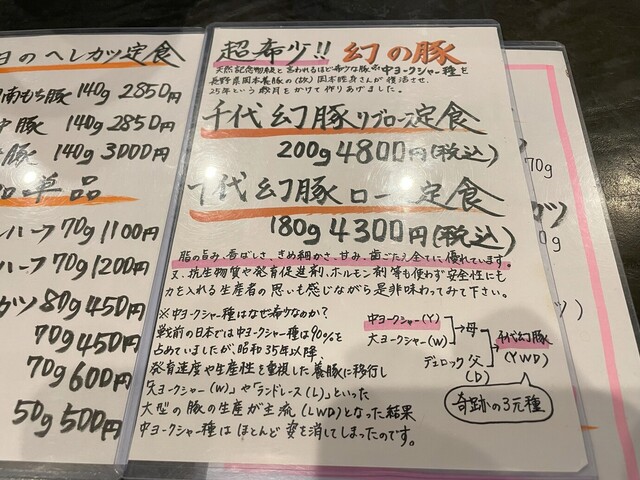 日のヘレカツ定食
南もち豚 140g 2850円
豚 140g 2850円
豚 140g 3000円
単品
ハーフ 70g 1100円
ハーフ 70g 1200円
カツ 80g 450円
70g 450円
70g 600円
50g 500円
超希少!! 幻の豚
天然記念物級と言われるほど希少な豚の中ヨークシャー種を
長野県岡本養豚の(故)岡本陸身さんが復活させ、
25年という歳月をかけて作りあげました。
千代幻豚リブロース定食
200g 4800円(税込)
千代幻豚ロース定食
180g 4300円(税込)
脂の旨み、香ばしさ、きめ細かさ、甘み、歯ごたえ全てに優れています。
又、抗生物質や発育促進剤、ホルモン剤等も使わず安全性にも
力を入れる生産者の思いも感じながら是非味わってみて下さい。
※中ヨークシャー種はなぜ希少なのか?
戦前の日本では中ヨークシャー種は90%を
占めていましたが、昭和35年以降、
発育速度や生産性を重視した養豚に移行し
大ヨークシャー(W)や「ランドレース(L)」といった
大型の豚の生産が主流(LWD)となった結果
中ヨークシャー種はほとんど姿を消してしまったのです。
中ヨークシャー(Y)
大ヨークシャー(W)
→母
デュロック父
(D)
千代幻豚
(YWD)
奇跡の3元種
70g
0g